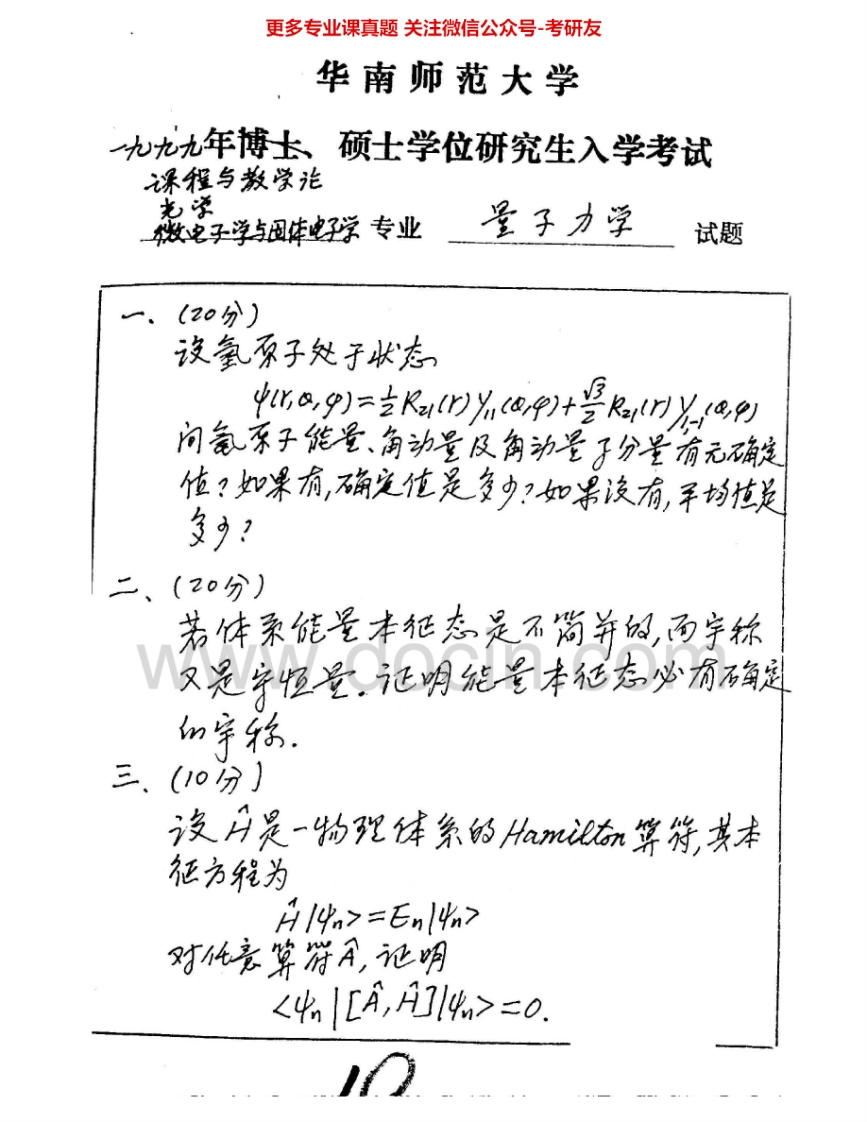 更多专业课真题 关注微信公众号-考研友
华南师范大学
一九九九年博士、硕士学位研究生入学考试
课程与教学论
光学
微电子学与固体电子学 专业 量子力学 试题
一、(20分)
设氢原子处于状态
ψ(r,θ,φ)=½R₂₁(r)Y₁₁(θ,φ)+√3/2 R₂₁(r)Y₁₋₁(θ,φ)
问氢原子能量、角动量及角动量z分量有无确定
值?如果有,确定值是多少?如果没有,平均值是
多少?
二、(20分)
若体系能量本征态是不简并的,而宇称
又是守恒量。证明能量本征态必有确定
的宇称.
www.docin.com
三、(10分)
设Ĥ是一物理体系的Hamilton算符,其本
征方程为
Ĥ|ψₙ>=Eₙ|ψₙ>
对任意算符Â,证明
<ψₙ|[Â,Ĥ]|ψₙ>=0.